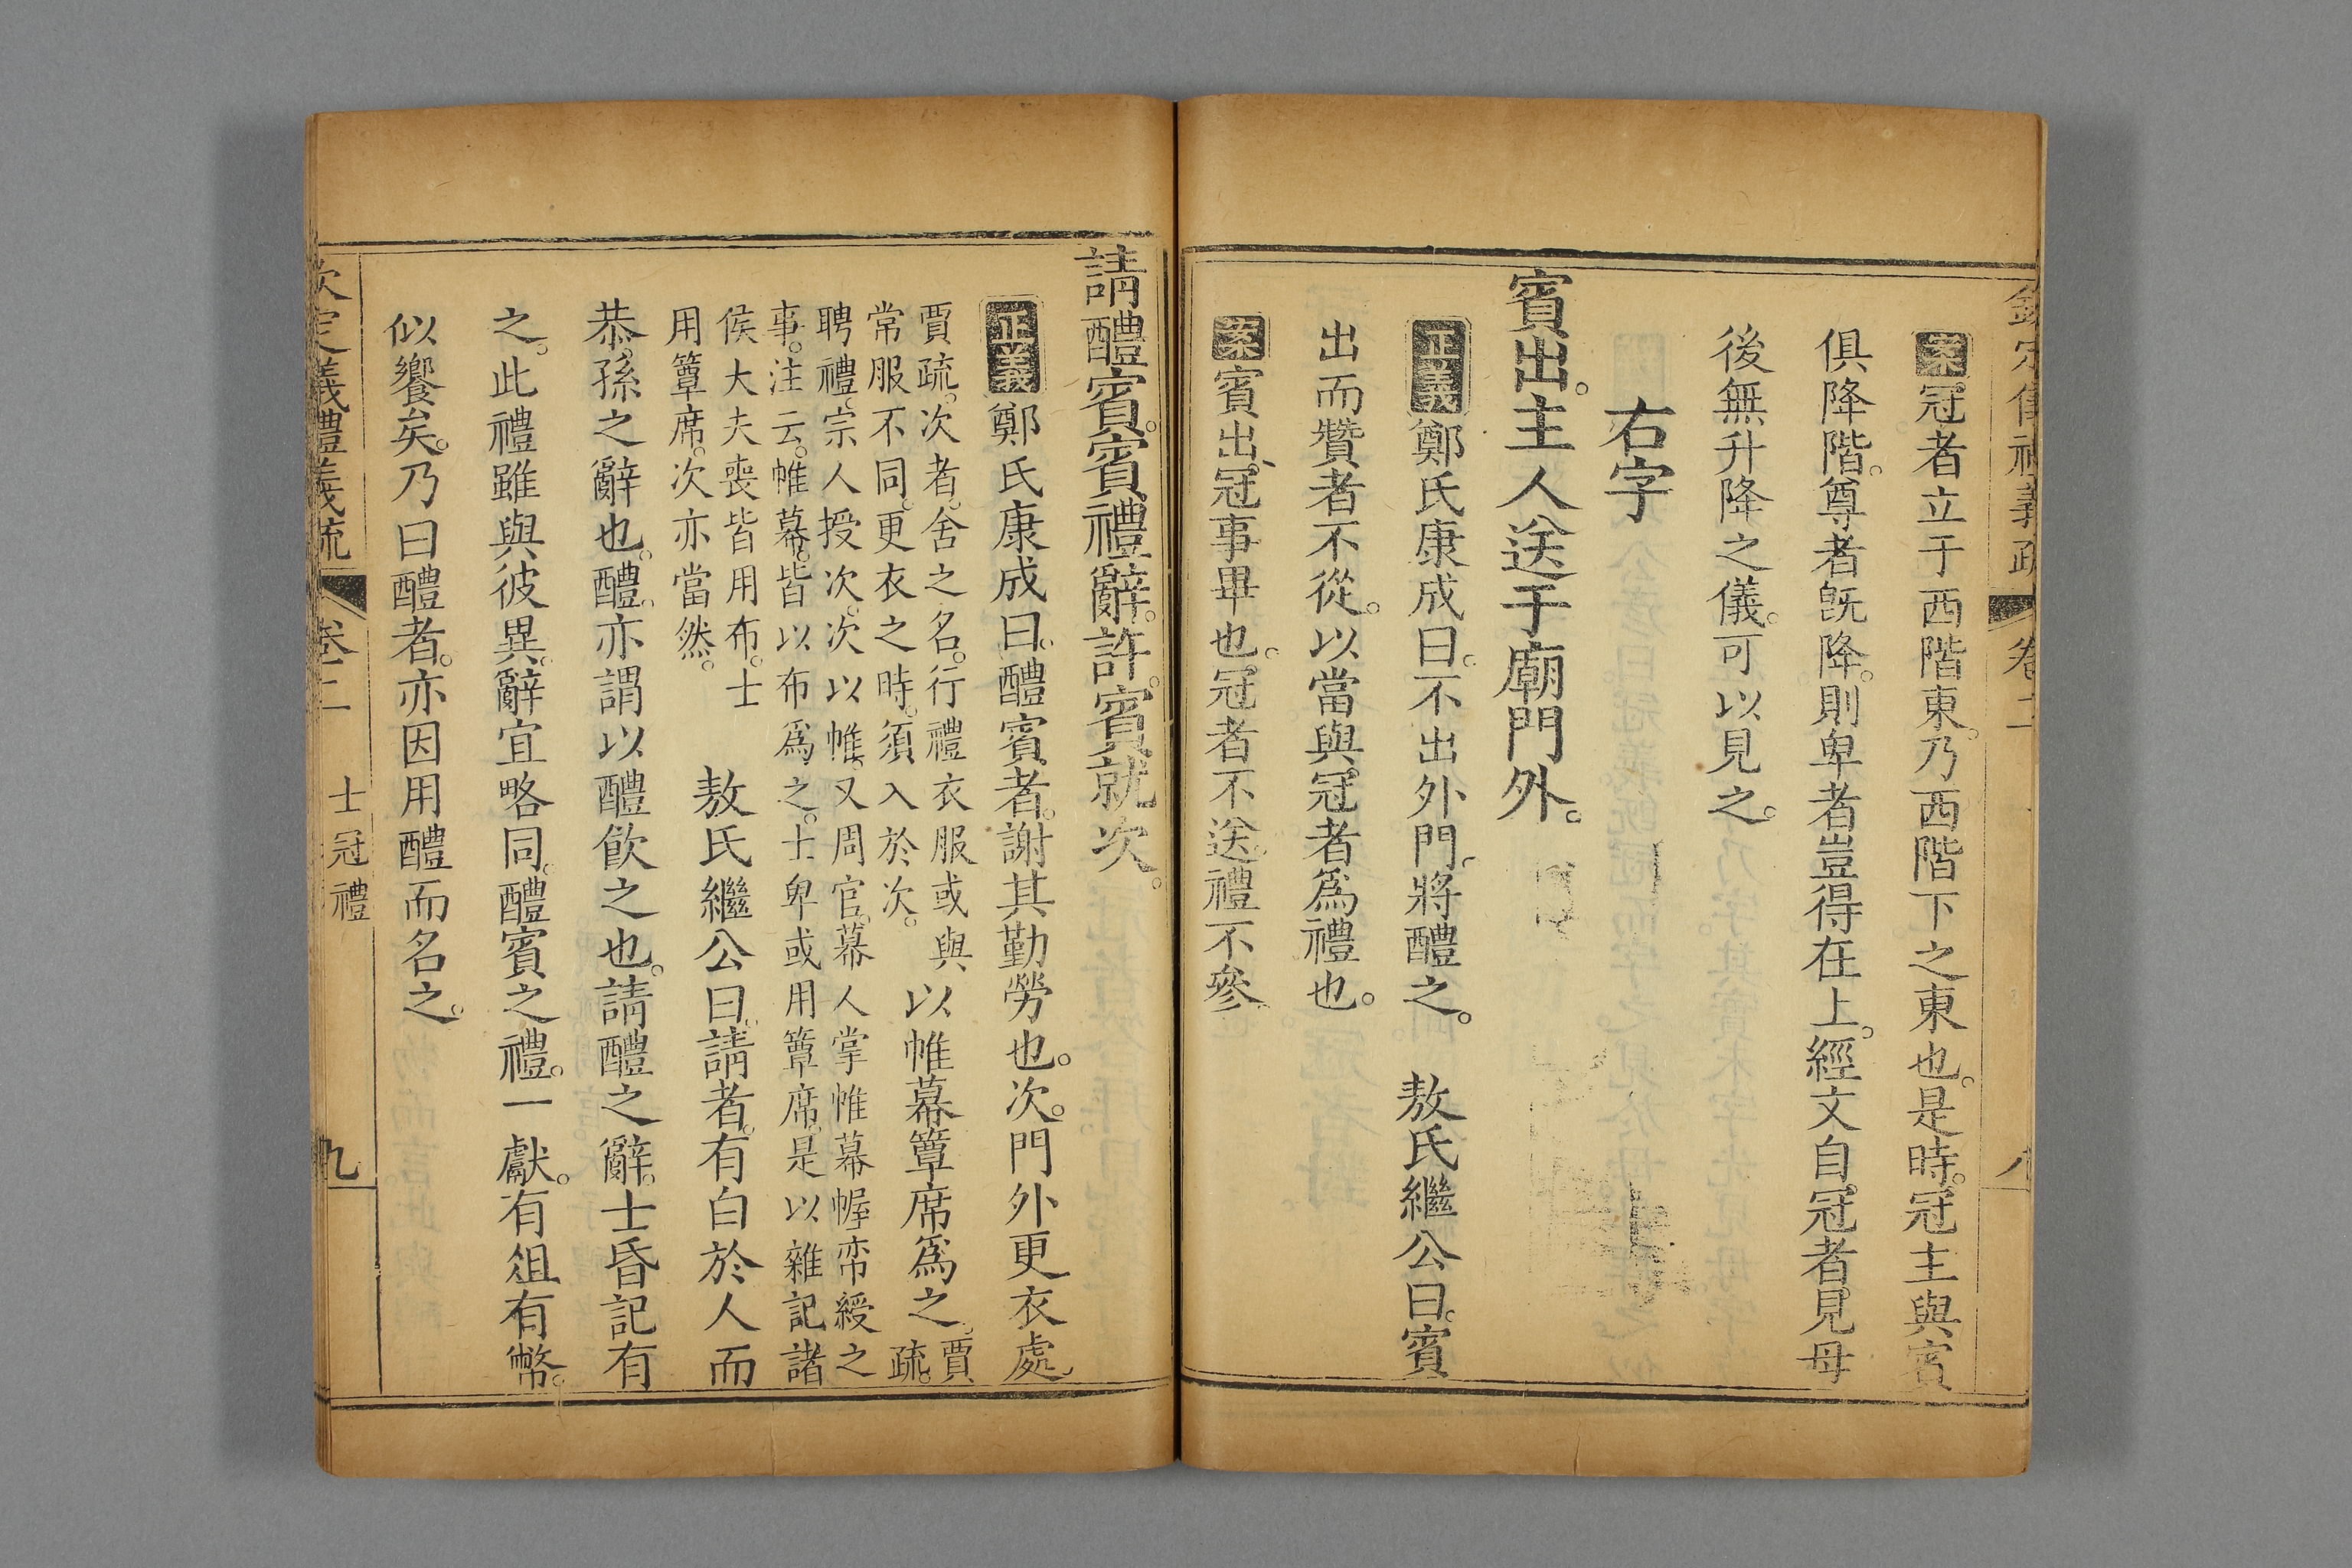 欽定儀禮義疏 卷二 八
案冠者立于西階東。乃西階下之東也。是時。冠主與賓
俱降階。尊者旣降。則卑者豈得在上。經文自冠者見母
後無升降之儀。可以見之。
右字
賓出。主人送于廟門外。
正義鄭氏康成曰。不出外門。將醴之。 敖氏繼公曰。賓
出而贊者不從。以當與冠者爲禮也。
案賓出、冠事畢也。冠者不送。禮不參
請醴賓。賓禮辭。許。賓就次。
正義鄭氏康成曰。醴賓者。謝其勤勞也。次。門外更衣處。
以帷幕簟席爲之。賈疏。
賈疏。次者。舍之名。行禮衣服或與
常服不同。更衣之時。須入於次。
聘禮。宗人授次。次以帷。又周官。幕人掌帷幕幄帟綬之
事。注云。帷幕。皆以布爲之。士卑或用簟席。是以雜記諸
侯大夫喪皆用布。士
用簟席。次亦當然。
敖氏繼公曰。請者。有白於人而
恭孫之辭也。醴。亦謂以醴飮之也。請醴之辭。士昏記有
之。此禮雖與彼異。辭宜略同。醴賓之禮。一獻。有俎有幣。
似饗矣。乃曰醴者。亦因用醴而名之。
欽定義禮義疏 卷二 士冠禮 九